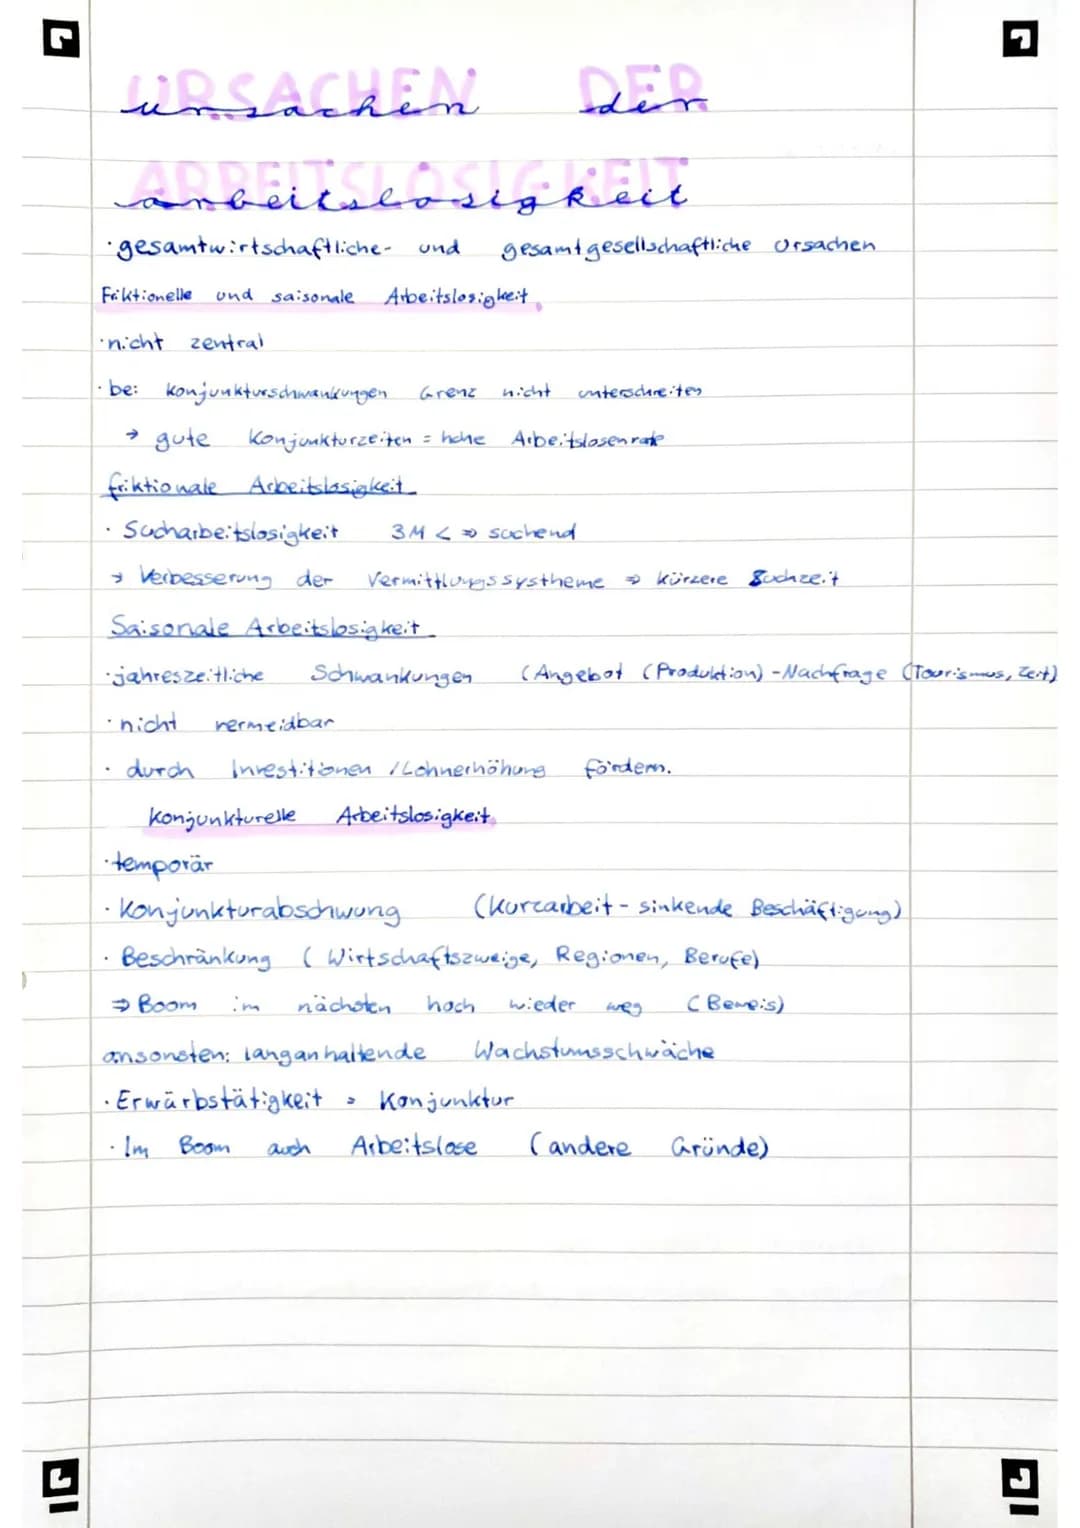 URSACHEN DER
ursachen der
ARBEITSLOSIGKEIT
arbeitslosigkeit
· gesamtwirtschaftliche- und gesamtgesellschaftliche Ursachen
Friktionelle und saisonale Arbeitslosigkeit
· nicht zentral
· bei Konjunkturschwankungen Grenz nicht unterschreiten
→ gute Konjunkturzeiten = hohe Arbeitslosenrate
friktionale Arbeitslosigkeit
· Sucharbeitslosigkeit 3M < ⇒ suchend
→ Verbesserung der Vermittlungssystheme ⇒ kürzere Suchzeit
Saisonale Arbeitslosigkeit
· jahreszeitliche Schwankungen (Angebot (Produktion) - Nachfrage (Tourismus, Zeit)
· nicht vermeidbar
· durch Investitionen / Lohnerhöhung fördern.
Konjunkturelle Arbeitslosigkeit
· temporär
· Konjunkturabschwung (Kurzarbeit - sinkende Beschäftigung)
· Beschränkung (Wirtschaftszweige, Regionen, Berufe)
⇒ Boom im nächsten hoch wieder weg (Beweis)
ansonsten: langanhaltende Wachstumsschwäche
· Erwärbstätigkeit Konjunktur
· Im Boom auch Arbeitslose (andere Gründe)